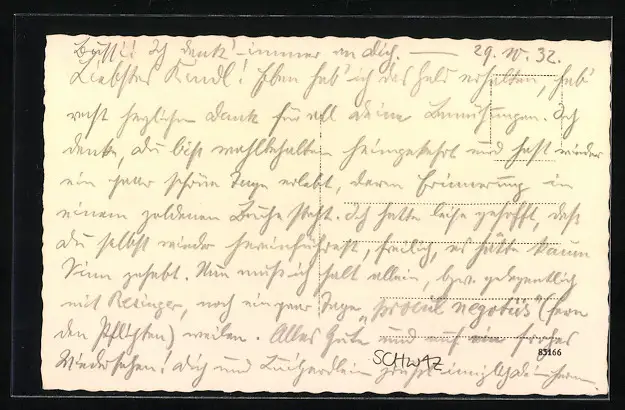 Bussi! Ich denk' immer an dich. — 29. IV. 32.
Liebstes Kindl! Eben hab' ich das Geld erhalten, hab'
recht herzlichen Dank für all deine Bemühungen. Ich
denke, du bist wohlbehalten heimgekehrt und hast wieder
ein paar schöne Tage erlebt, deren Erinnerung in
einem goldenen Buche steht. Ich hatte leise gehofft, daß
du selbst wieder hereinführest, freilich, es hätte kaum
Sinn gehabt. Nun muß ich halt allein, bzw. gelegentlich
mit noch ein paar Tage „procul negotiis" (fern
den Pflichten) weilen. Alles Gute und auf ein frohes
Wiedersehen! Dich und grüßt innigst dein
SCHWAZ
83166